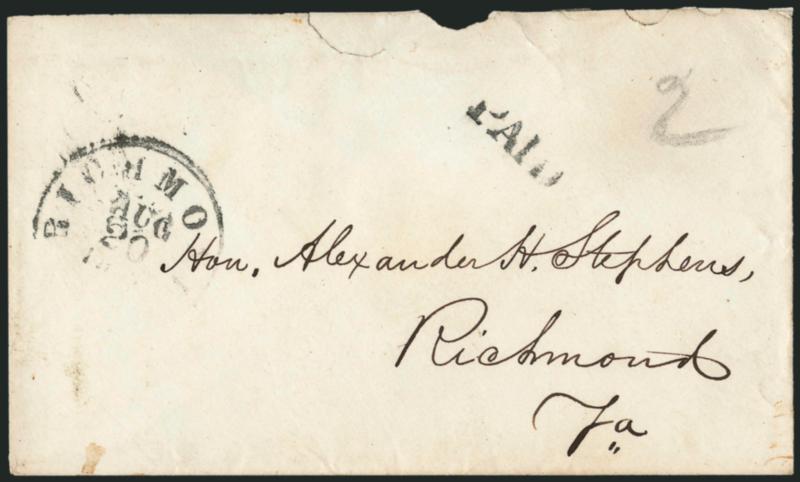 PAID
2
RICHMO
Hon. Alexander H. Stephens,
Richmond
Va